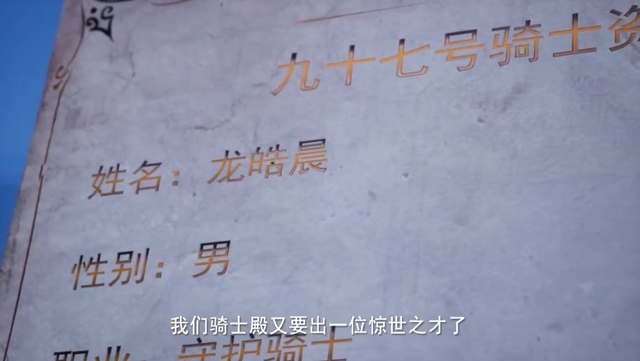 九十七号骑士资
姓名：龙皓晨
性别：男
职业：守护骑士
我们骑士殿又要出一位惊世之才了